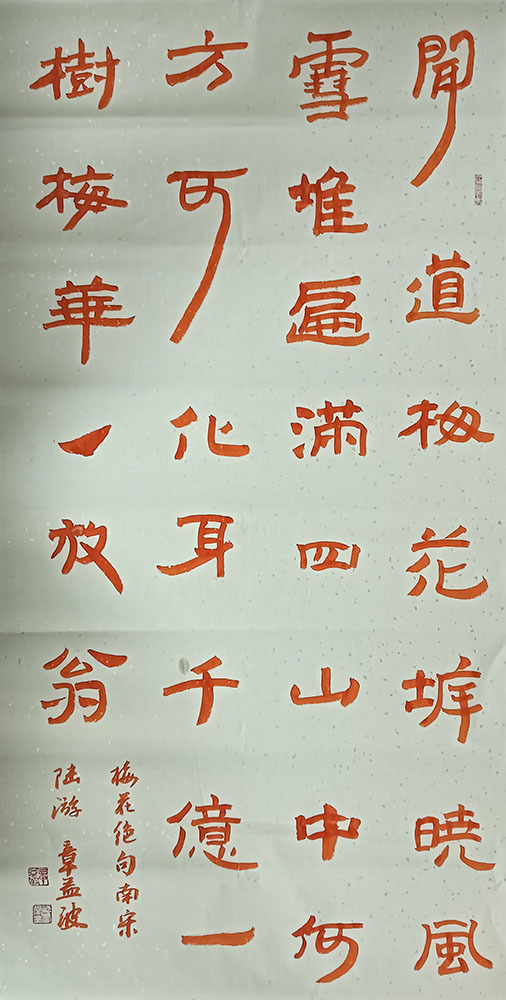 聞道梅花坼曉風
雪堆匾滿四山中何
方可化身千億一
樹梅華一放翁
梅花绝句南宋
陆游 章益